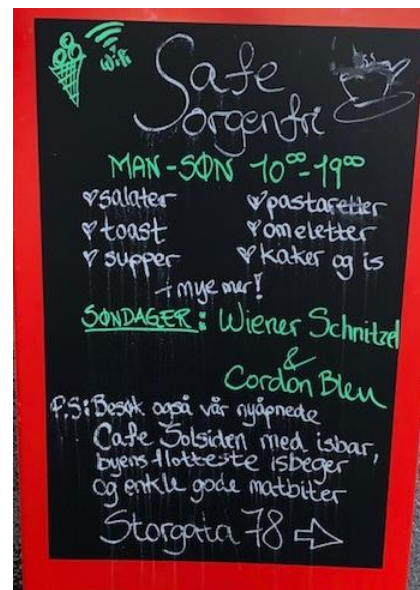 wifi
Cafe
Sorgenfri
MAN-SØN 10⁰⁰-19⁰⁰
♥salater ♥pastaretter
♥toast ♥omeletter
♥supper ♥kaker og is
+mye mer!
SØNDAGER: Wiener Schnitzel
&
Cordon Bleu
P.S: Besøk også vår nyåpnede
Cafe Solsiden med isbar,
byens flotteste isbeger
og enkle gode matbiter
Storgata 78 →